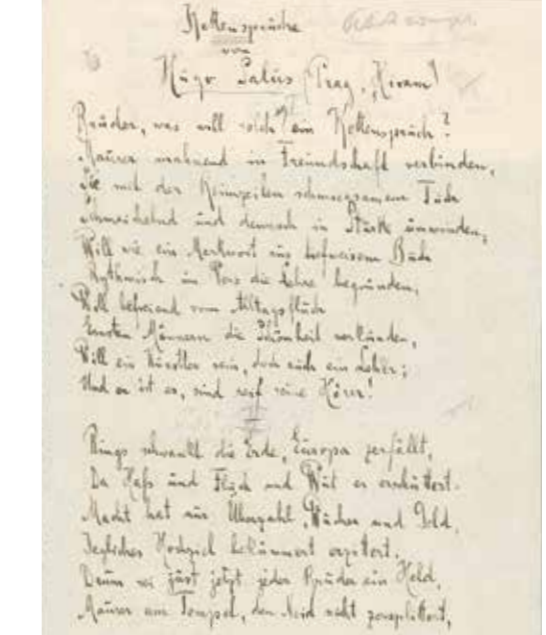 Kettensprüche
von
Hugo Salus (Prag, „Hiram“)
I
Brüder, was will solch ein Kettenspruch?
Maurer mahnend in Freundschaft verbinden,
Sie mit der Reimzeilen schmiegsamem Tuch
Schmeichelnd und dennoch in Stärke umwinden,
Will wie ein Merkwort aus tiefweisem Buch
Rythmisch im Vers die Lehre begründen,
Will befreiend vom Alltagsfluch
Ernsten Männern die Schönheit verkünden,
Will ein Künstler sein, doch auch ein Lehrer;
Und er ist es, sind reif seine Hörer!
II
Rings schwankt die Erde, Europa zerfällt,
Da Haß und Fluch und Wut es erschüttert.
Macht hat nur Wucher und Geld,
Jegliches erzittert.
Drum sei just jetzt jeder Bruder ein Held,
Maurer am Tempel, den Neid nicht zersplittert,